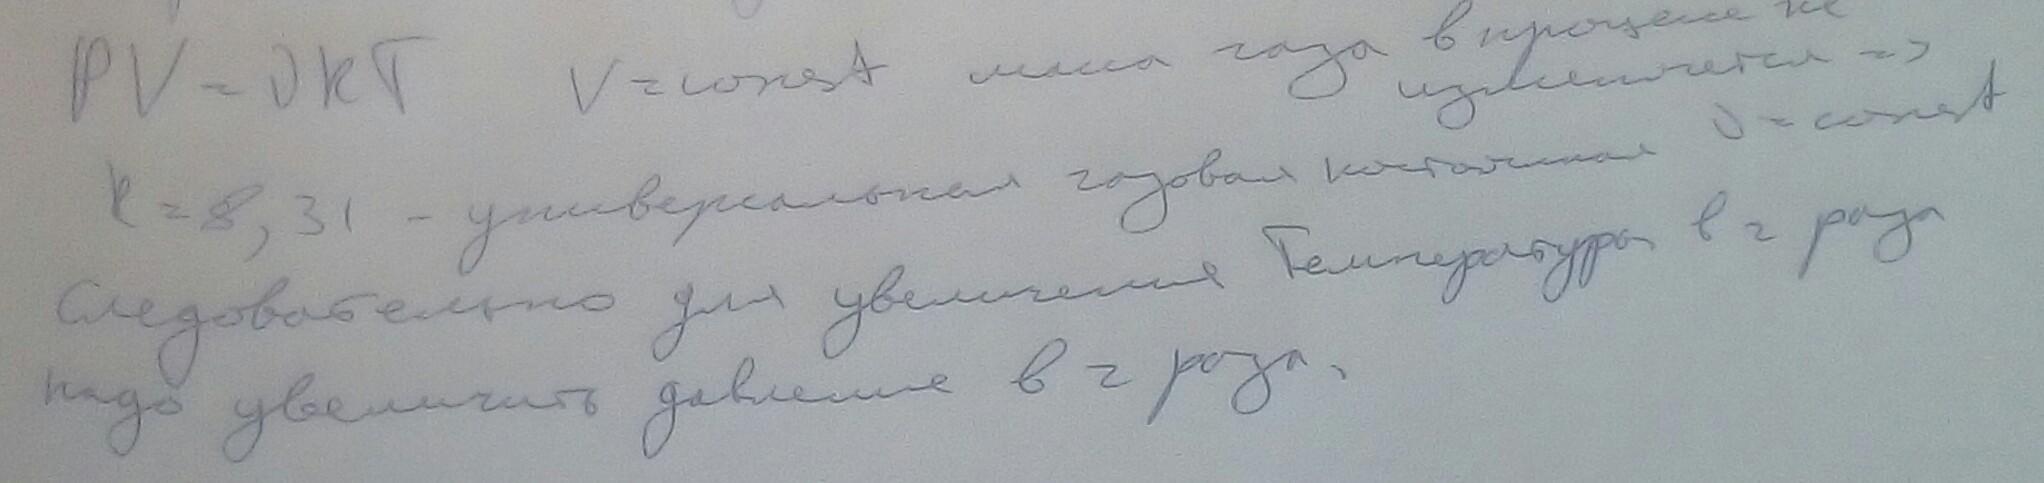 PV = νRT V = const масса газа в процессе не
изменяется =>
ν = const
R = 8,31 - универсальная газовая постоянная
Следовательно для увеличения температуры в 2 раза
надо увеличить давление в 2 раза.